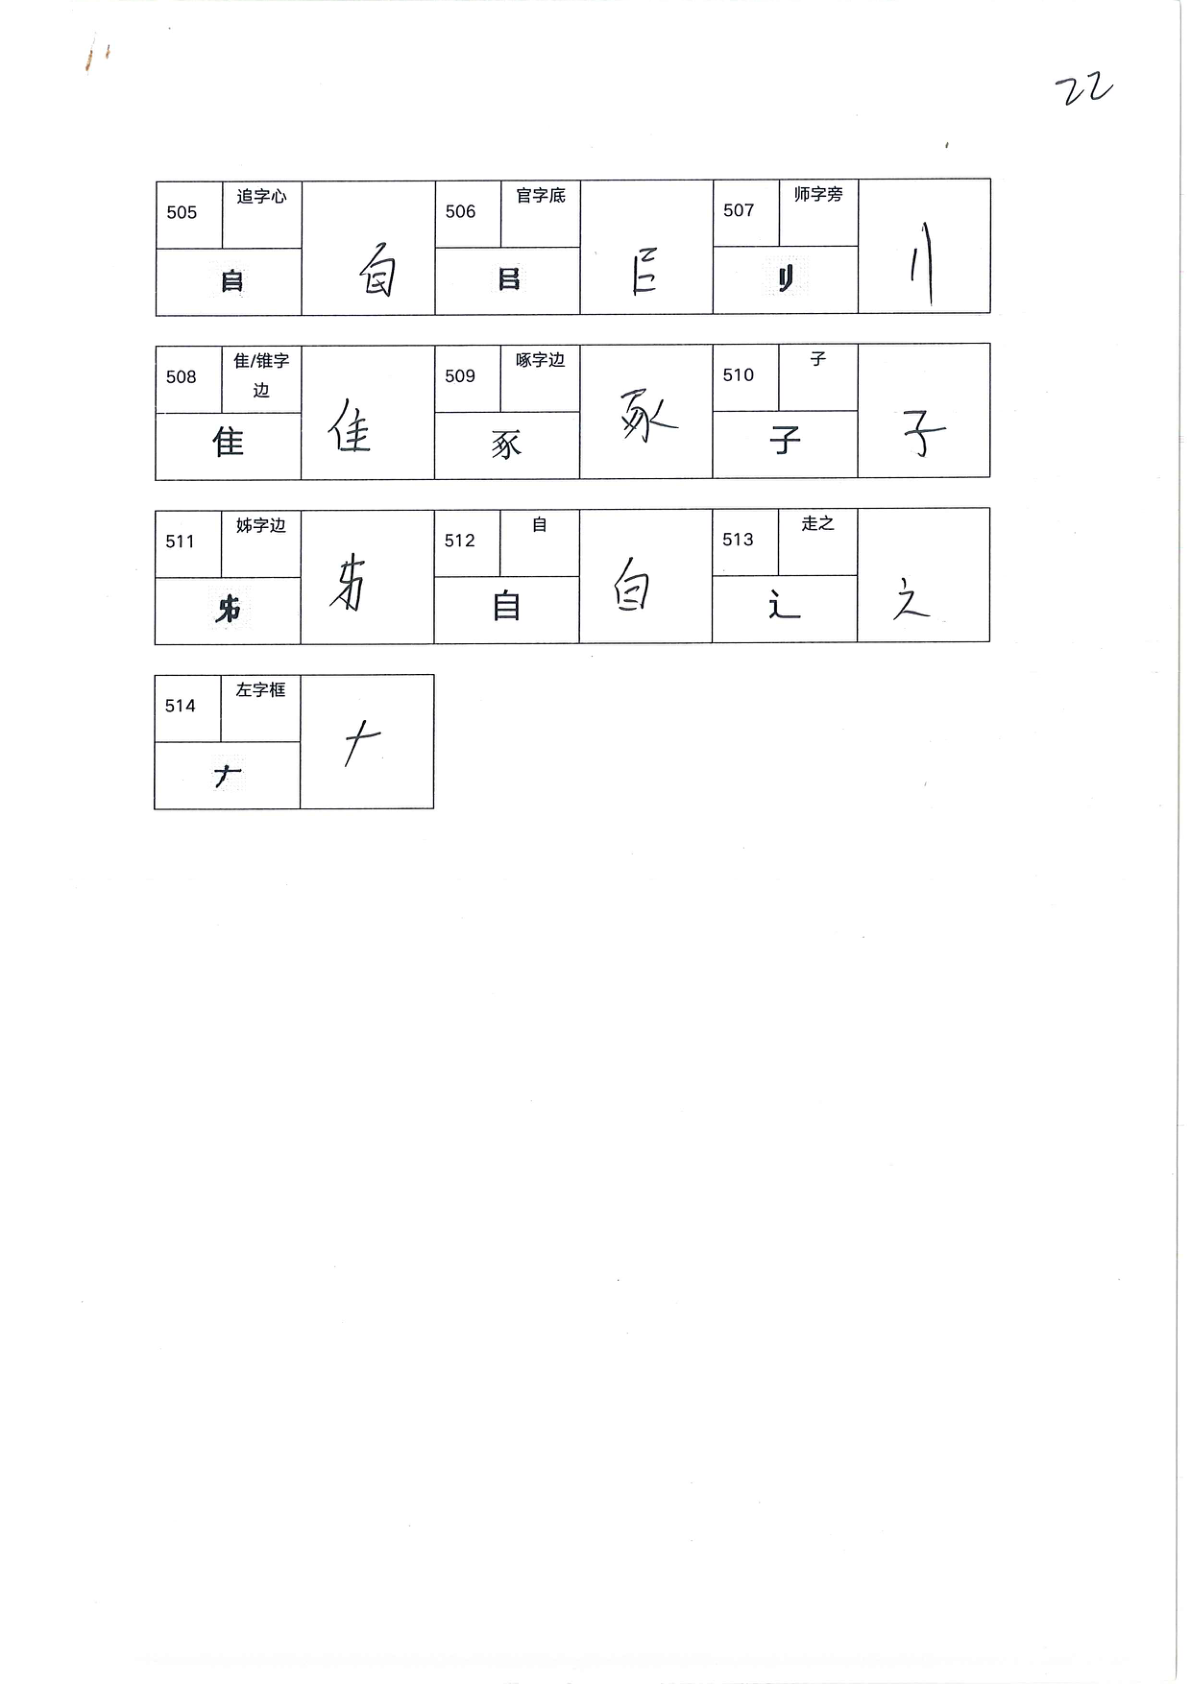 22
505 追字心 506 官字底 507 师字旁
𠂤 㠯 刂
508 隹/锥字边 509 啄字边 510 子
隹 隹 豖 豖 子 子
511 姊字边 512 自 513 走之
自 自 辶
514 左字框
𠂇 𠂇